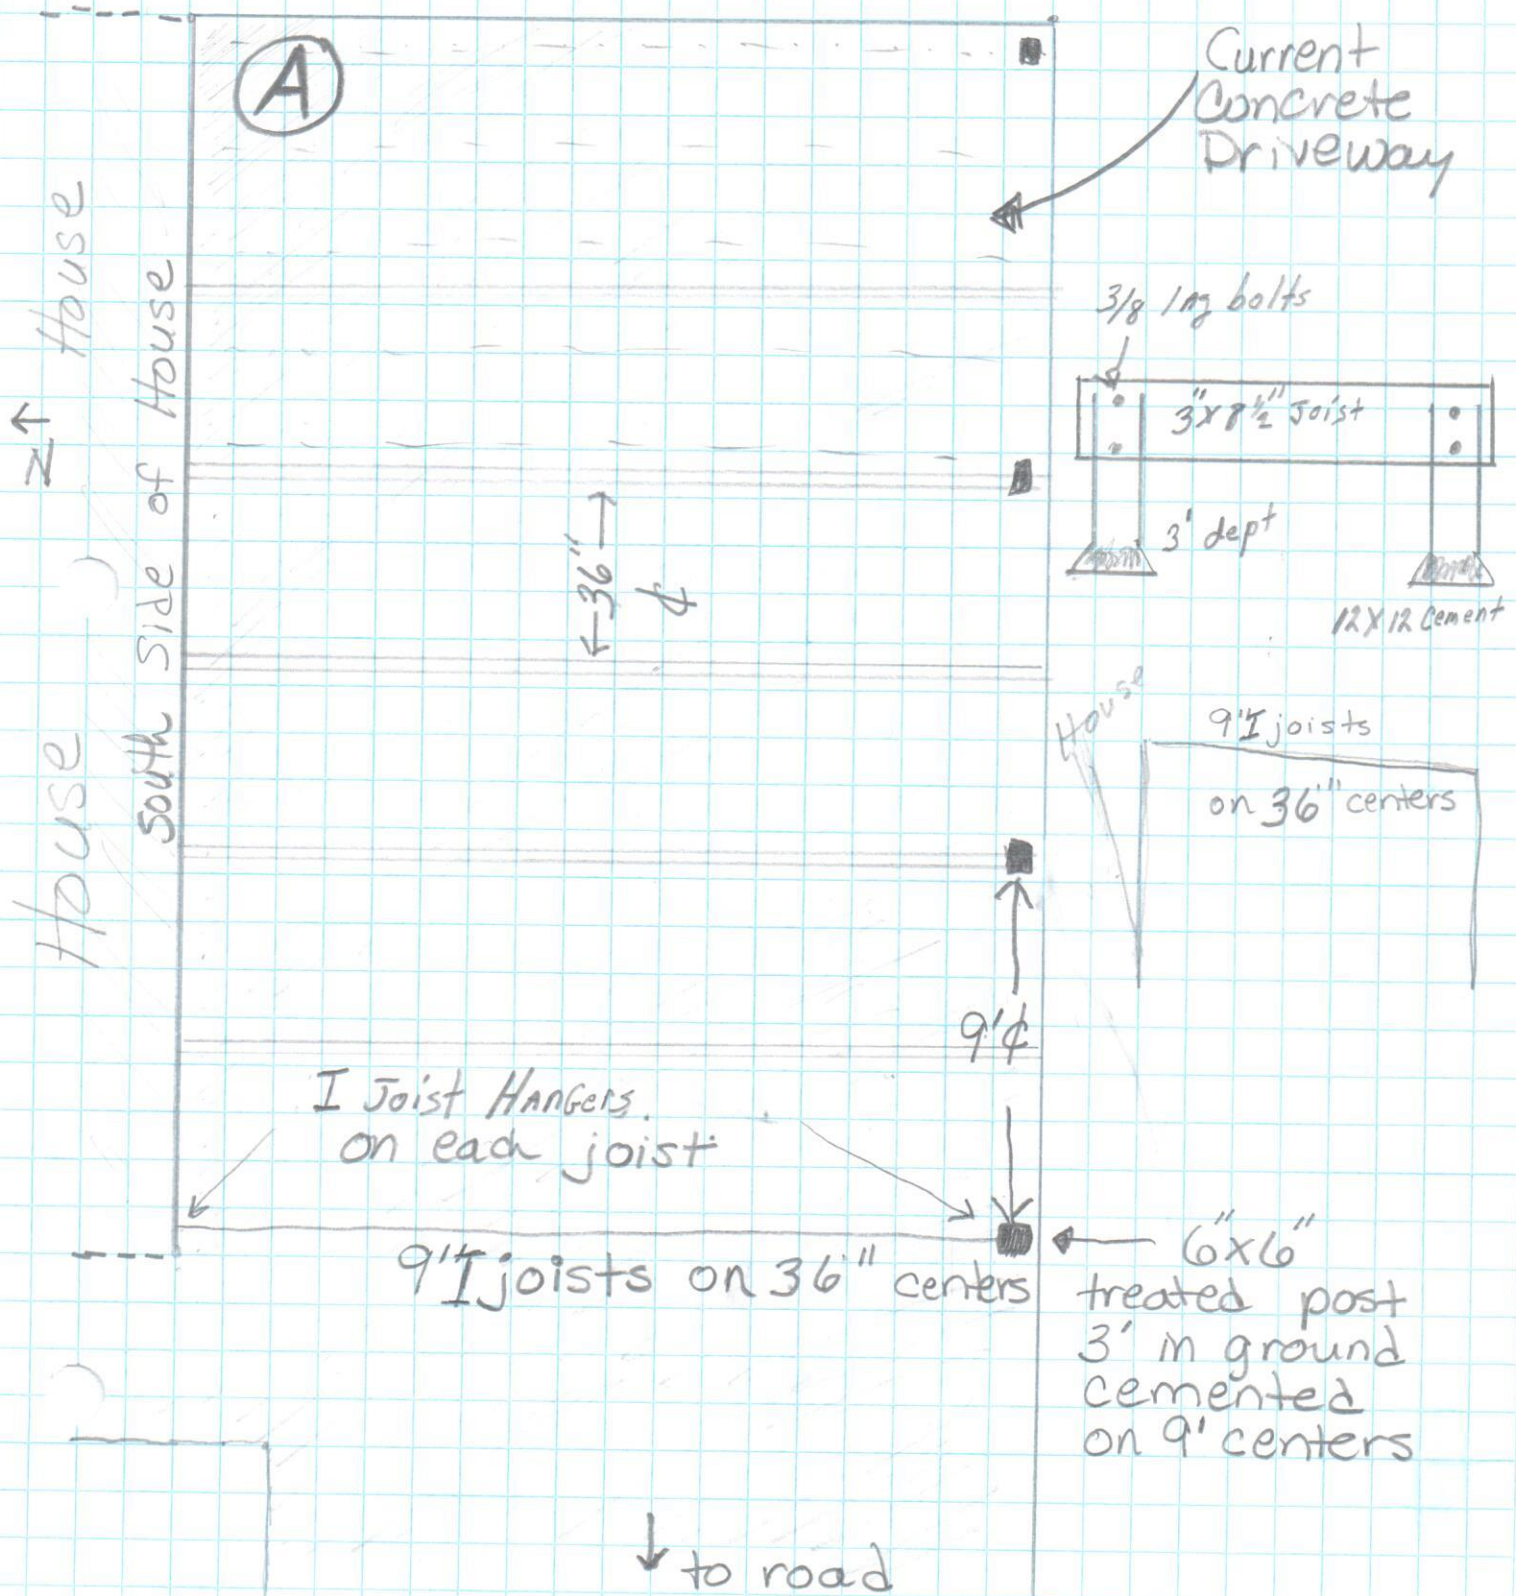 A
Current
Concrete
Driveway
House
House
N
South Side of House
3/8 lag bolts
3" x 8 1/2" Joist
3' dept
12 x 12 Cement
36"
¢
House
9' I joists
on 36" centers
9' ¢
I Joist HANGers.
on each joist
9' I joists on 36" centers
6" x 6"
treated post
3' in ground
cemented
on 9' centers
to road